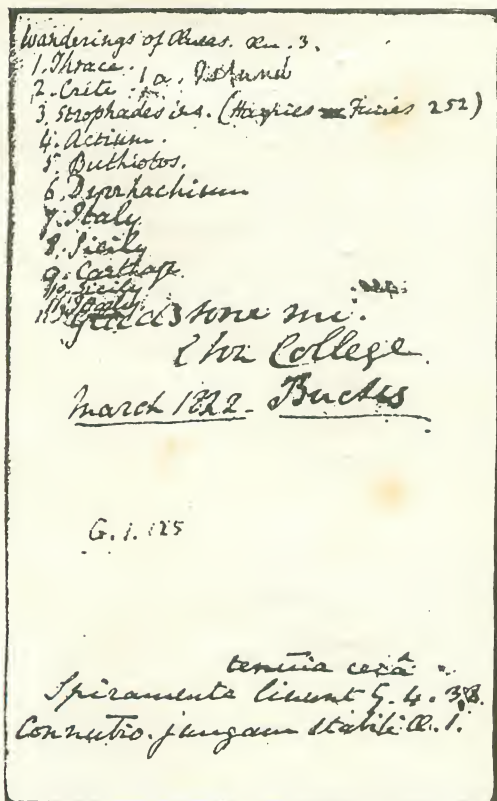 Wanderings of Æneas. Æn. 3.
1. Thrace.
2. Crete. 1a.
3. Strophades ins. (Harpies Furies 252)
4. Actium.
5. Buthrotos.
6. Dyrrhachium
7. Italy
8. Sicily
9. Carthage.
10. Sicily
11. Italy
Gladstone mi.
Eton College.
March 1822. Bucks
G. 1. 125
tenuia cerâ
Spiramenta linunt G. 4. 38.
Connubio jungam stabili Æ. 1.